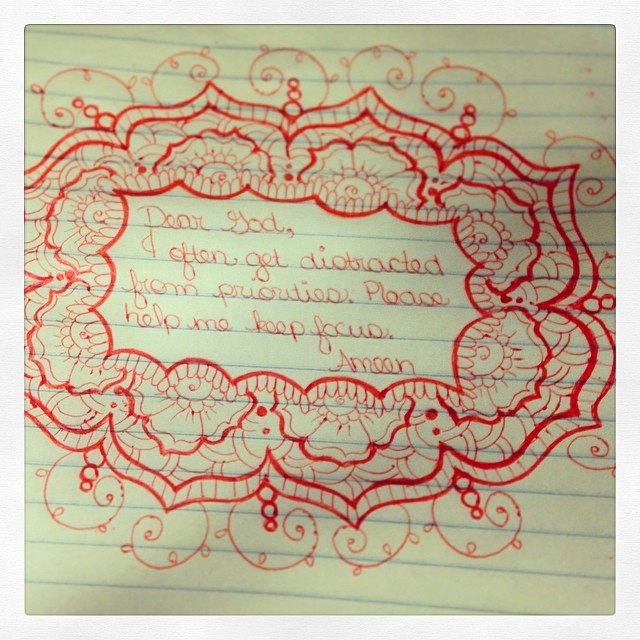 Dear God,
I often get distracted
from priorities. Please
help me keep focus.
Ameen